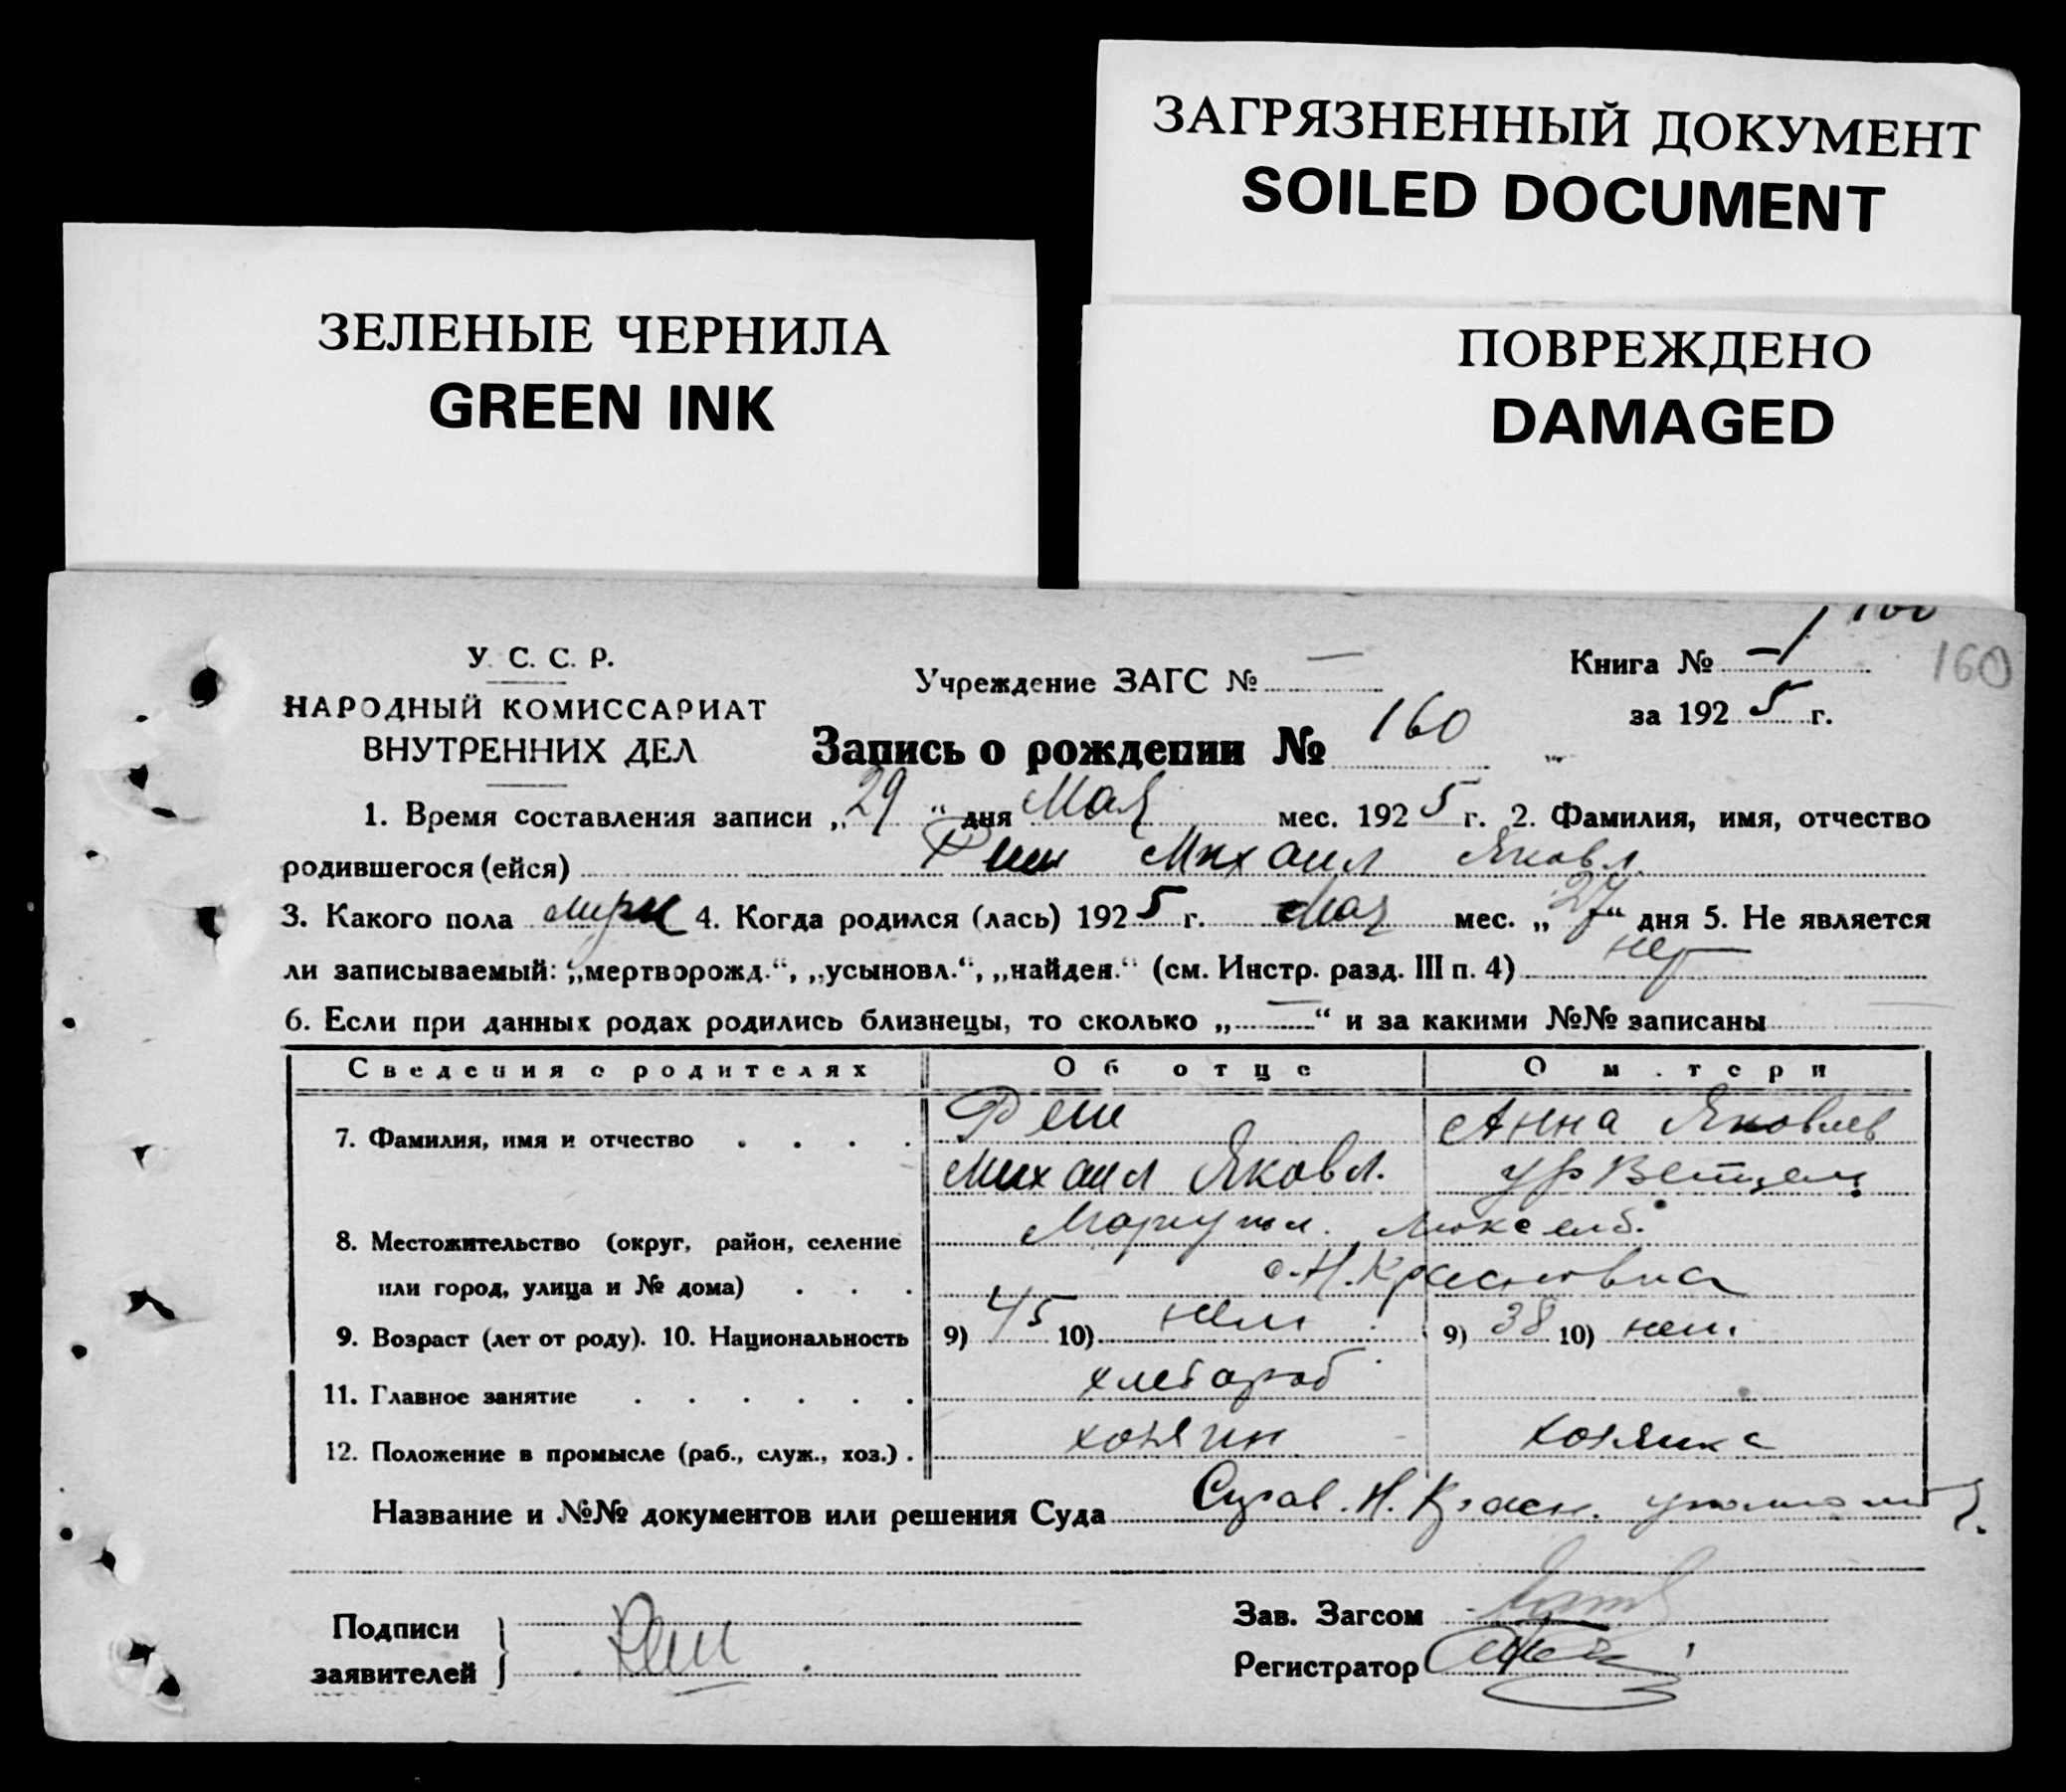 ЗАГРЯЗНЕННЫЙ ДОКУМЕНТ
SOILED DOCUMENT
ЗЕЛЕНЫЕ ЧЕРНИЛА
GREEN INK
ПОВРЕЖДЕНО
DAMAGED
У. С. С. Р.
НАРОДНЫЙ КОМИССАРИАТ
ВНУТРЕННИХ ДЕЛ
Учреждение ЗАГС № —
Книга № 1
160
за 1925 г.
Запись о рождении № 160
1. Время составления записи „29“ дня Мая мес. 1925 г. 2. Фамилия, имя, отчество
родившегося (ейся) Михаил Яковл.
3. Какого пола 4. Когда родился (лась) 1925 г. Мая мес. „27“ дня 5. Не является
ли записываемый: „мертворожд.“, „усыновл.“, „найден.“ (см. Инстр. разд. III п. 4) нет
6. Если при данных родах родились близнецы, то сколько „—“ и за какими №№ записаны
Сведения о родителях Об отце О матери
7. Фамилия, имя и отчество Анна Яковлев
Михаил Яковл. ур Ветцель
8. Местожительство (округ, район, селение Мариуп. Люксемб.
или город, улица и № дома) с. Н. Красновка
9. Возраст (лет от роду). 10. Национальность 9) 45 10) нем 9) 38 10) нем.
11. Главное занятие хлебороб
12. Положение в промысле (раб., служ., хоз.) хозяин хозяйка
Название и №№ документов или решения Суда Н. Красн.
Подписи
заявителей
Зав. Загсом
Регистратор